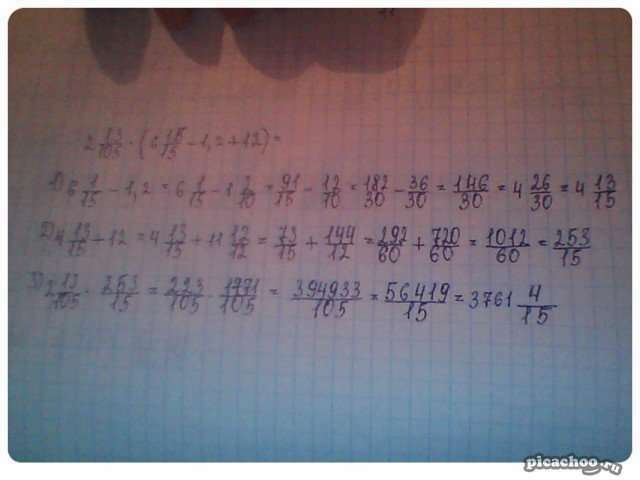 2 13/105 · (6 1/15 - 1,2 + 12) =
1) 6 1/15 - 1,2 = 6 1/15 - 1 2/10 = 91/15 - 12/10 = 182/30 - 36/30 = 146/30 = 4 26/30 = 4 13/15
2) 4 13/15 + 12 = 4 13/15 + 11 12/12 = 73/15 + 144/12 = 292/60 + 720/60 = 1012/60 = 253/15
3) 2 13/105 · 253/15 = 223/105 · 1771/105 = 394933/105 = 56419/15 = 3761 4/15
picachoo.ru